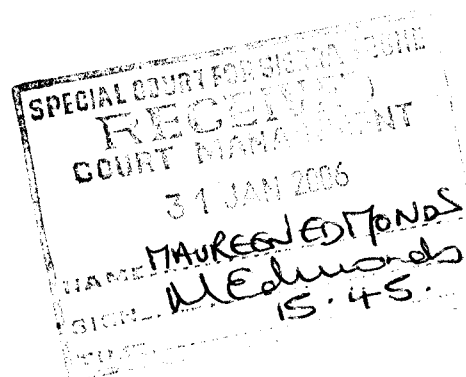 SPECIAL COURT FOR SIERRA LEONE
RECEIVED
COURT MANAGEMENT
31 JAN 2006
NAME MAUREEN EDMONDS
SIGN MEdmonds
TIME 15.45.